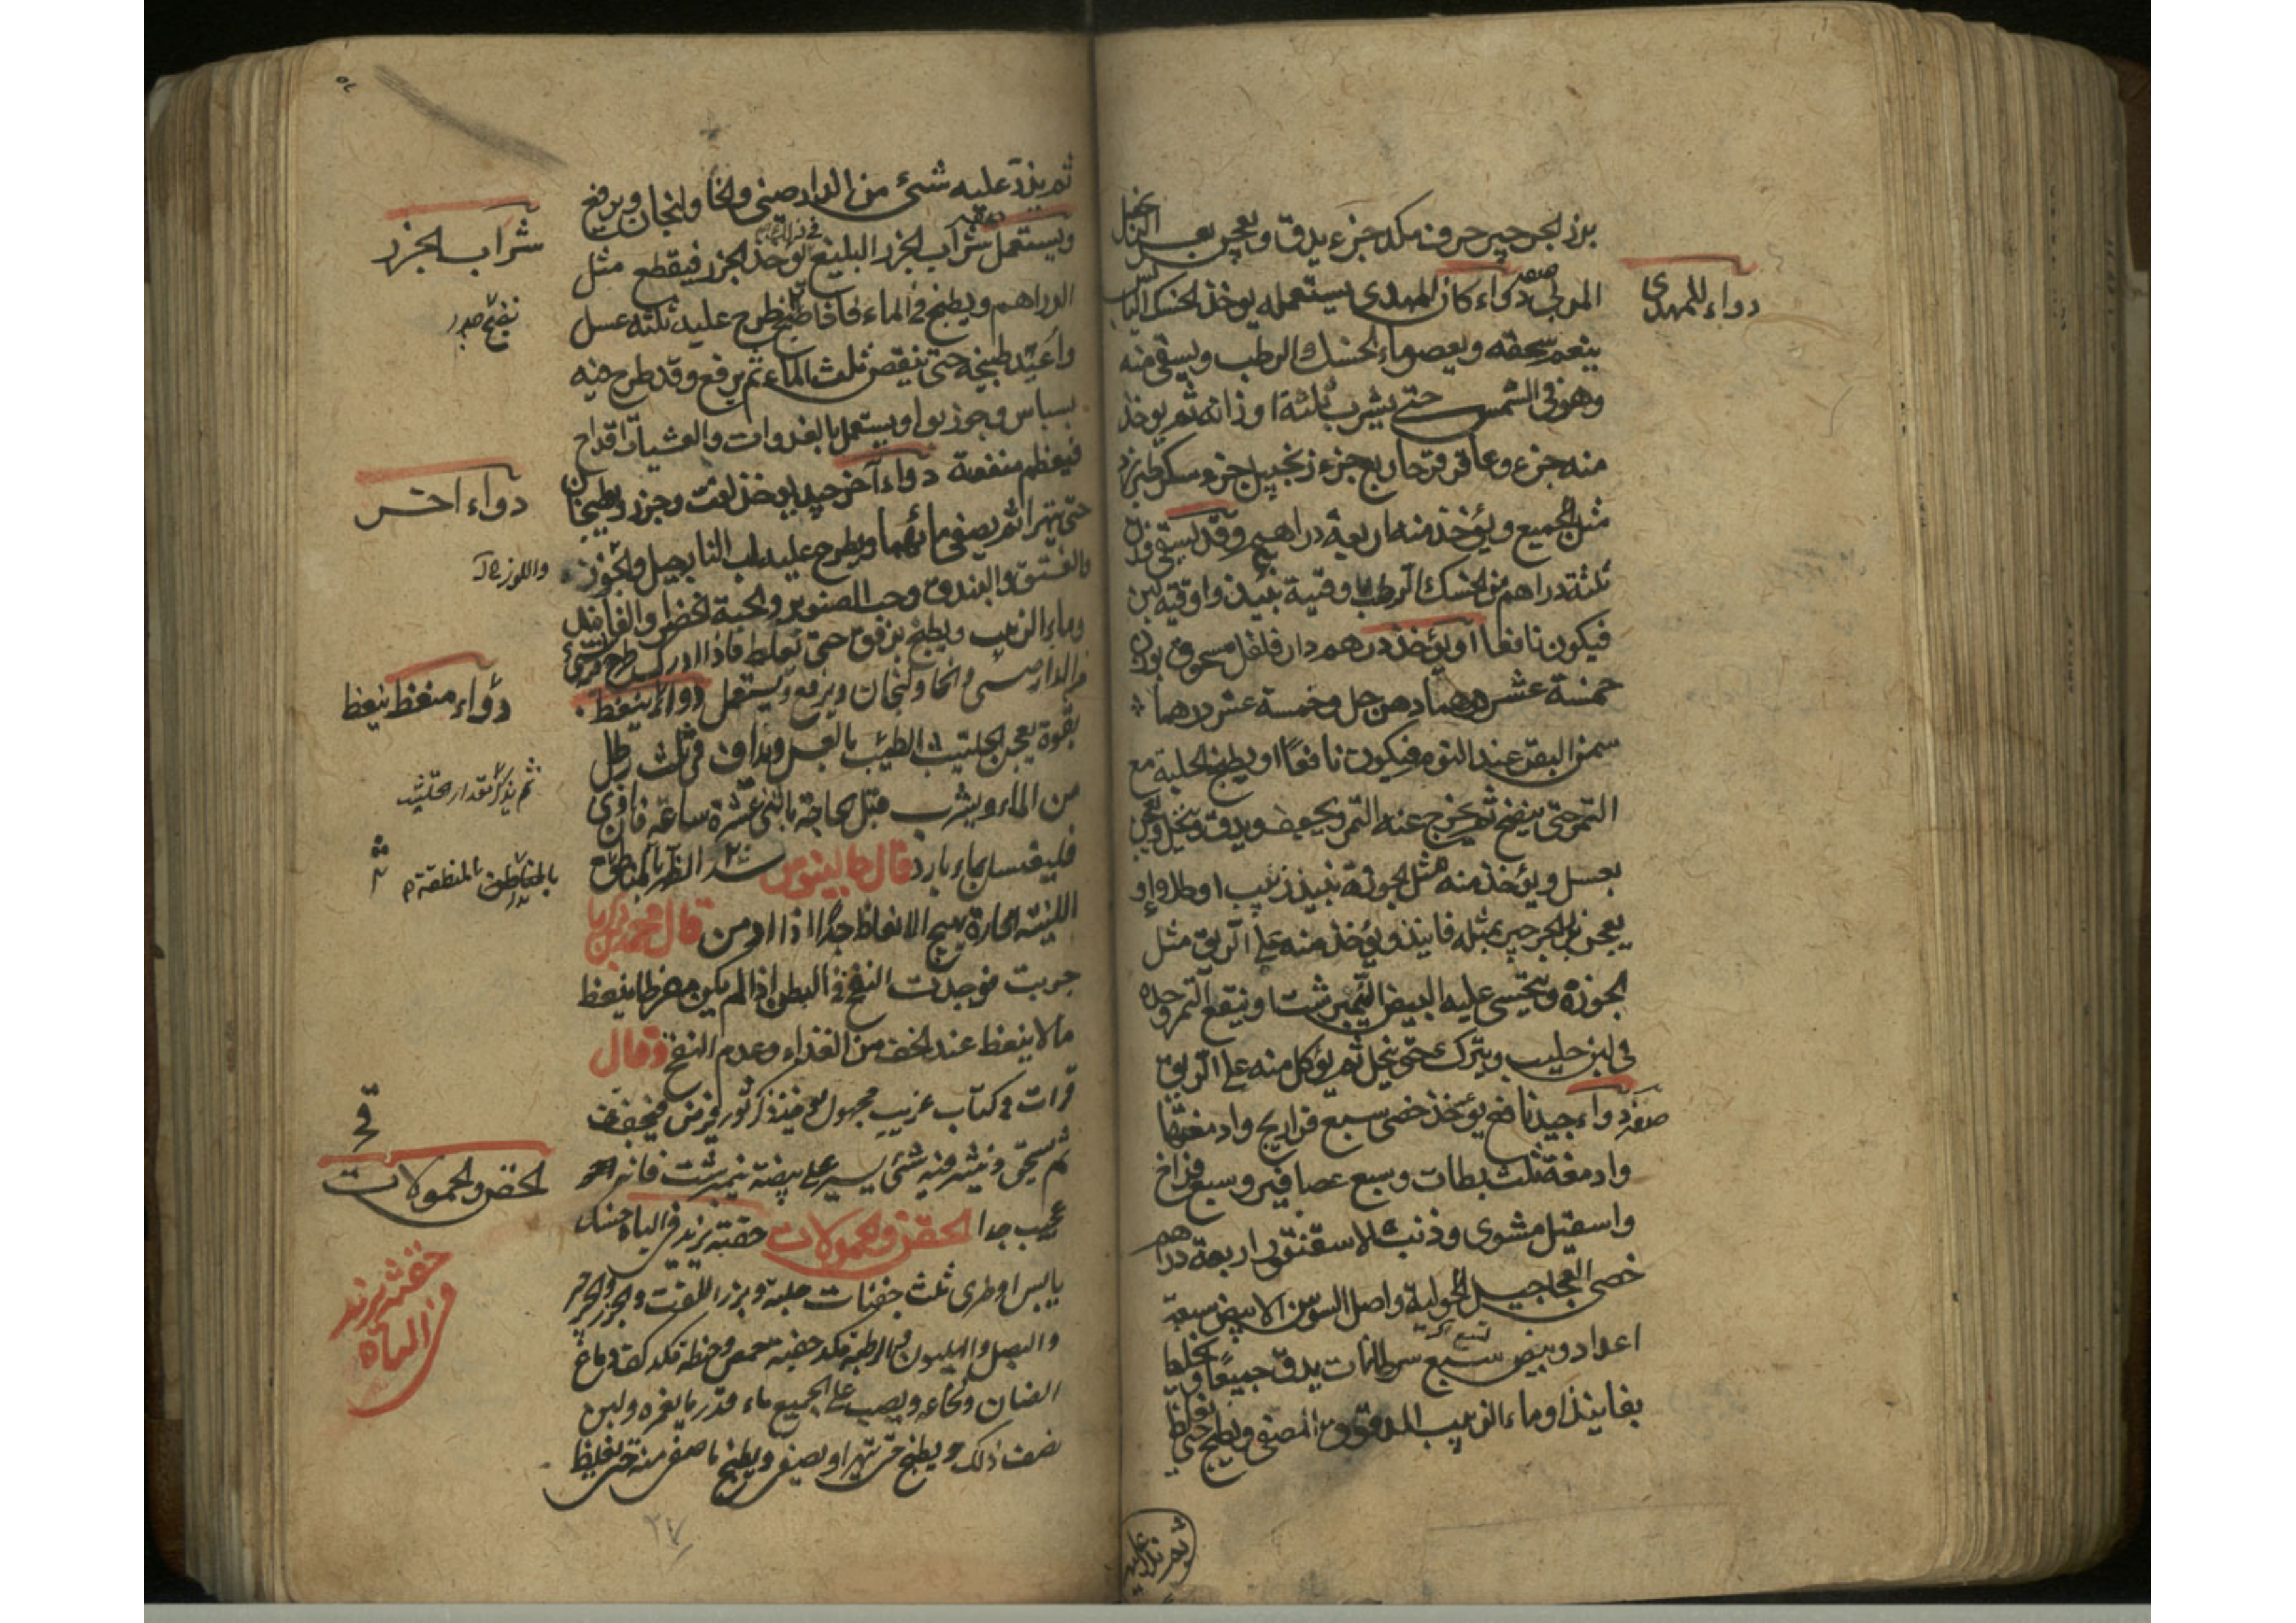 بزر الجرجير حرف مكد جزء يدق ويعجن بعسل الزنجبيل
المربى صفة دواء كان المهدى يستعمله يوخذ الحسك اليابس
ينعم سحقه ويعصر ماء الحسك الرطب ويسقى منه
وهو في الشمس حتى يشرب ثلثة اوزانه ثم يوخذ
منه جزء وعاقر قرحا ربع جزء زنجبيل جزء وسكر طبرزد
مثل الجميع ويؤخذ منه اربعة دراهم وقد يسقى قدر
ثلثة دراهم من الحسك الرطب وقية نبيذ واوقية لبن
فيكون نافعا او يؤخذ درهم دار فلفل مسحوق بوزن
خمسة عشر درهما دهن حل وخمسة عشر درهما
سمن البقر عند النوم فيكون نافعا او يطبخ الحلبة مع
التمر حتى ينضج ثم يخرج عنه التمر ويجفف ويدق وينخل ويعجن
بعسل ويؤخذ منه مثل الجوزة بنبيذ زبيب او طلا واو
يعجن بزر الجرجير بمثله فانيذ ويؤخذ منه على الريق مثل
الجوزة ويتحسى عليه البيض النيمبرشت او ينقع التمر وحده
في لبن حليب ويترك حتى ينحل ثم يؤكل منه على الريق
صفة دواء جيد نافع يؤخذ خصى سبع فراريج وادمغتها
وادمغة ثلث بطات وسبع عصافير وسبع فراخ
واسقيل مشوى وذنب الاسقنقور اربعة دراهم
خصى العجاجيل الحولية واصل السوسن الابيض سبعة
اعداد وبيض سبع سرطانات يدق جميعا وينخلها
بفانيذ او ماء الزبيب المدقوق المصفى ويطبخ حتى يغلظ
دواء للمهدى
ثم يذر عليه
ثم يذر عليه شىء من الدارصينى والخاولنجان ويرفع
ويستعمل صفة شراب الجزر البليغ في ذلك يوخذ الجزر فيقطع مثل
الدراهم ويطبخ في الماء فاذا طبخ طرح عليه ثلثه عسل
واعيد طبخه حتى ينقص ثلث الماء ثم يرفع وقد طرح فيه
بسباس وجوز بوا ويستعمل بالغدوات والعشيات اقداح
فيعظم منفعة دواء آخر جيد يوخذ لفت وجزر ويطبخان
حتى يتهرا ثم يصفى مائهما ويطرح عليه لب النارجيل والجوز
والفستق والبندق وحب الصنوبر والحبة الخضرا والفانيذ
وماء الزبيب ويطبخ برفق حتى يغلظ فاذا ادرك طرح فيه شىء
من الدارصينى والخاولنجان ويرفع ويستعمل دواء ينعظ
بقوة يعجن الحلتيت الطيب بالعسل ويداف في ثلث رطل
من الماء ويشرب قبل الحاجة باثنى عشرة ساعة فان اوذى
فليغتسل بماء بارد قال جالينوس شد الظهر بالمناطق
اللينة الحارة يهيج الانعاظ جدا اذا ادمن قال محمد بن زكريا
جربت فوجدت النفخ في البطن اذا لم يكن مفرطا ينعظ
مالا ينعظ عند الخف من الغذاء وعدم النفخ وقال
قرات في كتاب غريب مجهول يوخذ ذكر ثور فيجفف
ثم يسحق وينثر منه شىء يسير على بيضة نيمبرشت فانه
عجيب جدا الحقن والحمولات حقنة تزيد في الباه حسك
يابس او طرى ثلث حفنات حلبة وبزر اللفت والجزر والجرجير
والبصل والهليون والرطبة مكد حفنة حمص وحنطة مكد كف دماغ
الضان ونخاعه ويصب على الجميع ماء قدر ما يغمره ولبن
نصف ذلك ويطبخ حتى يتهرا ويصفى ويطبخ ما صفى منه حتى يغليظ
شراب الجزر
دواء اخر
دواء منعظ ينعظ
الحقن والحمولات
حقنة تزيد
في الباه